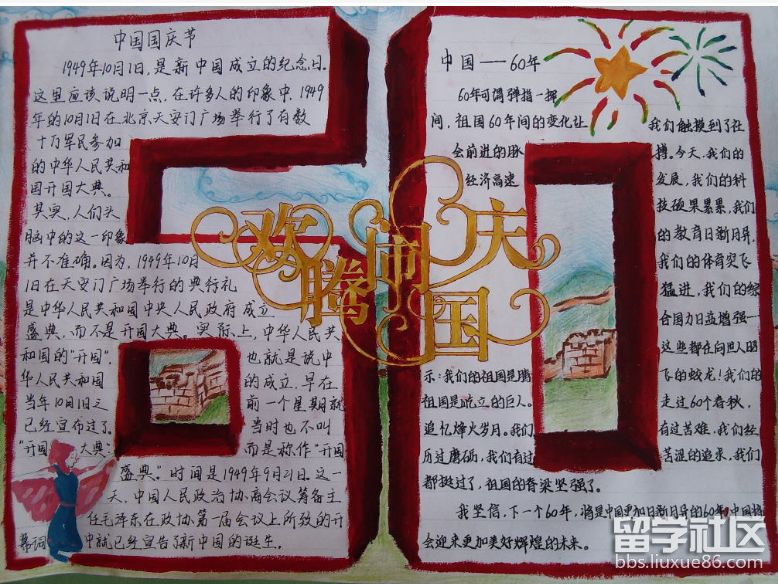 中国国庆节
1949年10月1日,是新中国成立的纪念日。
这里应该说明一点,在许多人的印象中,1949
年的10月1日在北京天安门广场举行了有数
十万军民参加
的中华人民共和
国开国大典。
其实,人们头
脑中的这一印象
并不准确。因为,1949年10月
1日在天安门广场举行的典礼
是中华人民共和国中央人民政府成立
盛典,而不是开国大典。实际上,中华人民共
和国的"开国",也就是说中
华人民共和国的成立,早在
当年10月1日之前一个星期就
已经宣布过了。当时也不叫
"开国大典",而是称作"开国
盛典"。时间是1949年9月21日。这一
天,中国人民政治协商会议筹备主
任毛泽东在政协第一届会议上所致的开
幕词中就已经宣告了新中国的诞生。
欢腾闹国庆
中国——60年
60年可谓弹指一挥
间,祖国60年间的变化让我们触摸到了社
会前进的脉搏。今天,我们的
经济高速发展,我们的科
技硕果累累,我们
的教育日新月异,
我们的体育突飞
猛进,我们的综
合国力日益增强——
这些都在向世人昭
示:我们的祖国是腾飞的蛟龙!我们的
祖国是屹立的巨人。走过60个春秋,
追忆烽火岁月。我们有过苦难,我们经
历过磨砺,我们有过苦涩的追求,我们
都挺过了,祖国的脊梁坚强了。
我坚信,下一个60年,将是中国更加日新月异的60年,中国将
会迎来更加美好辉煌的未来。
留学社区
bbs.liuxue86.com